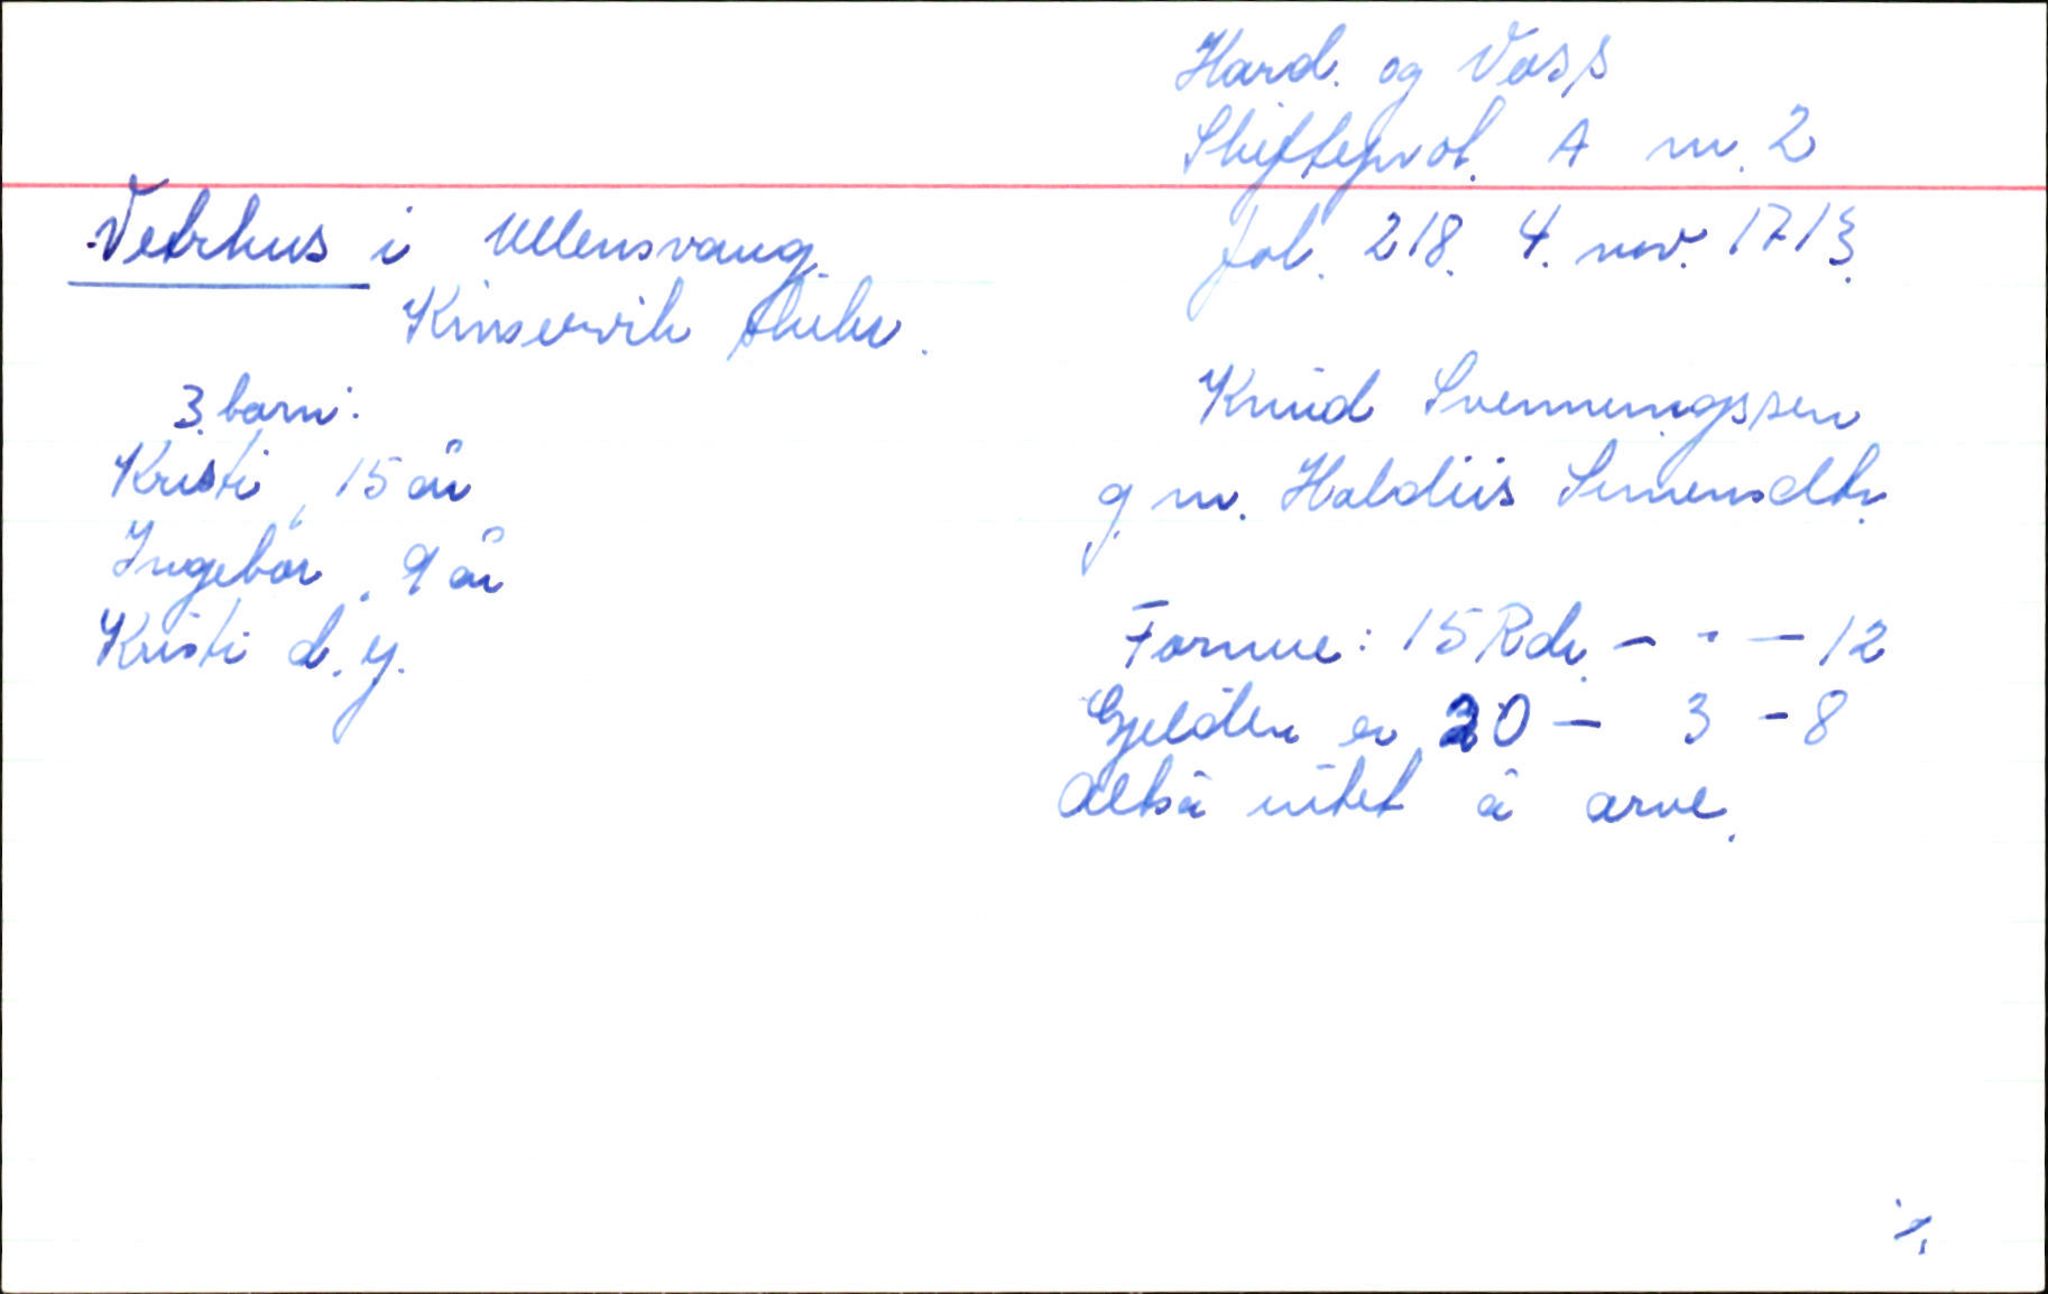 Hard. og Voss
Skifteprot. A nr. 2
fol. 218. 4. nov. 1713.
Vetrhus i Ullensvang.
Kinservik skibr.
3 barn:
Kristi, 15 år
Ingebor, 9 år
Kristi d. y.
Knud Svenningssen
g. m. Haldiis Simensdtr.
Formue: 15 Rdr. - - - 12
Gjelden er 20 - 3 - 8
Altså intet å arve.